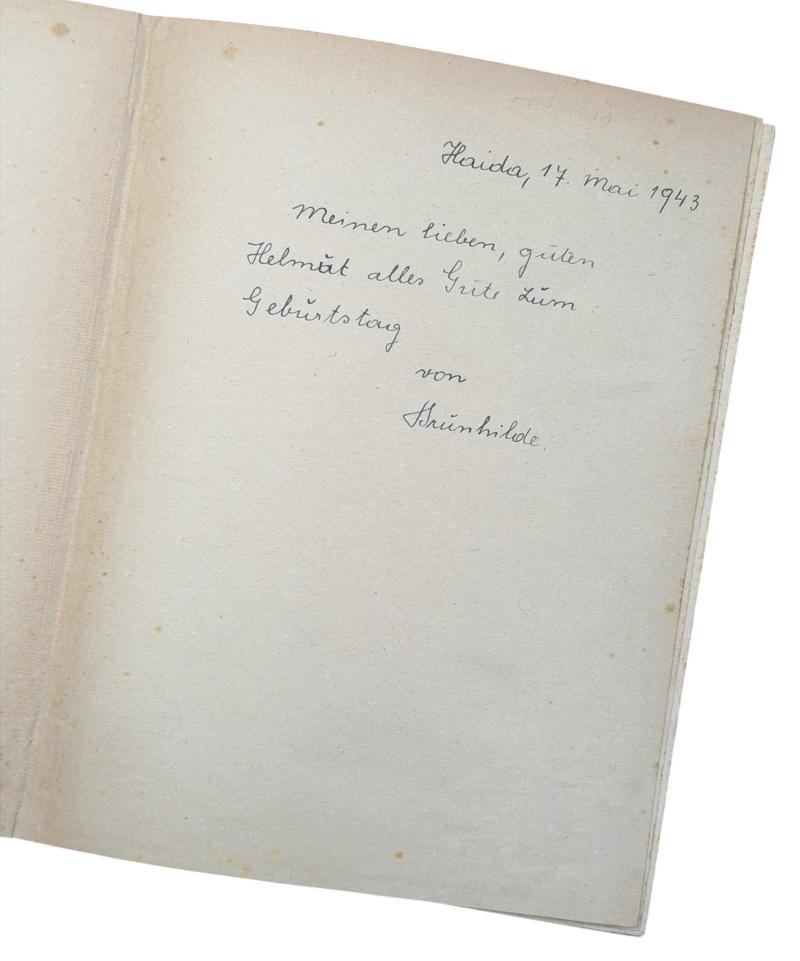 Haida, 17. Mai 1943
Meinen lieben, guten
Helmut alles Gute zum
Geburtstag
von
Brunhilde.